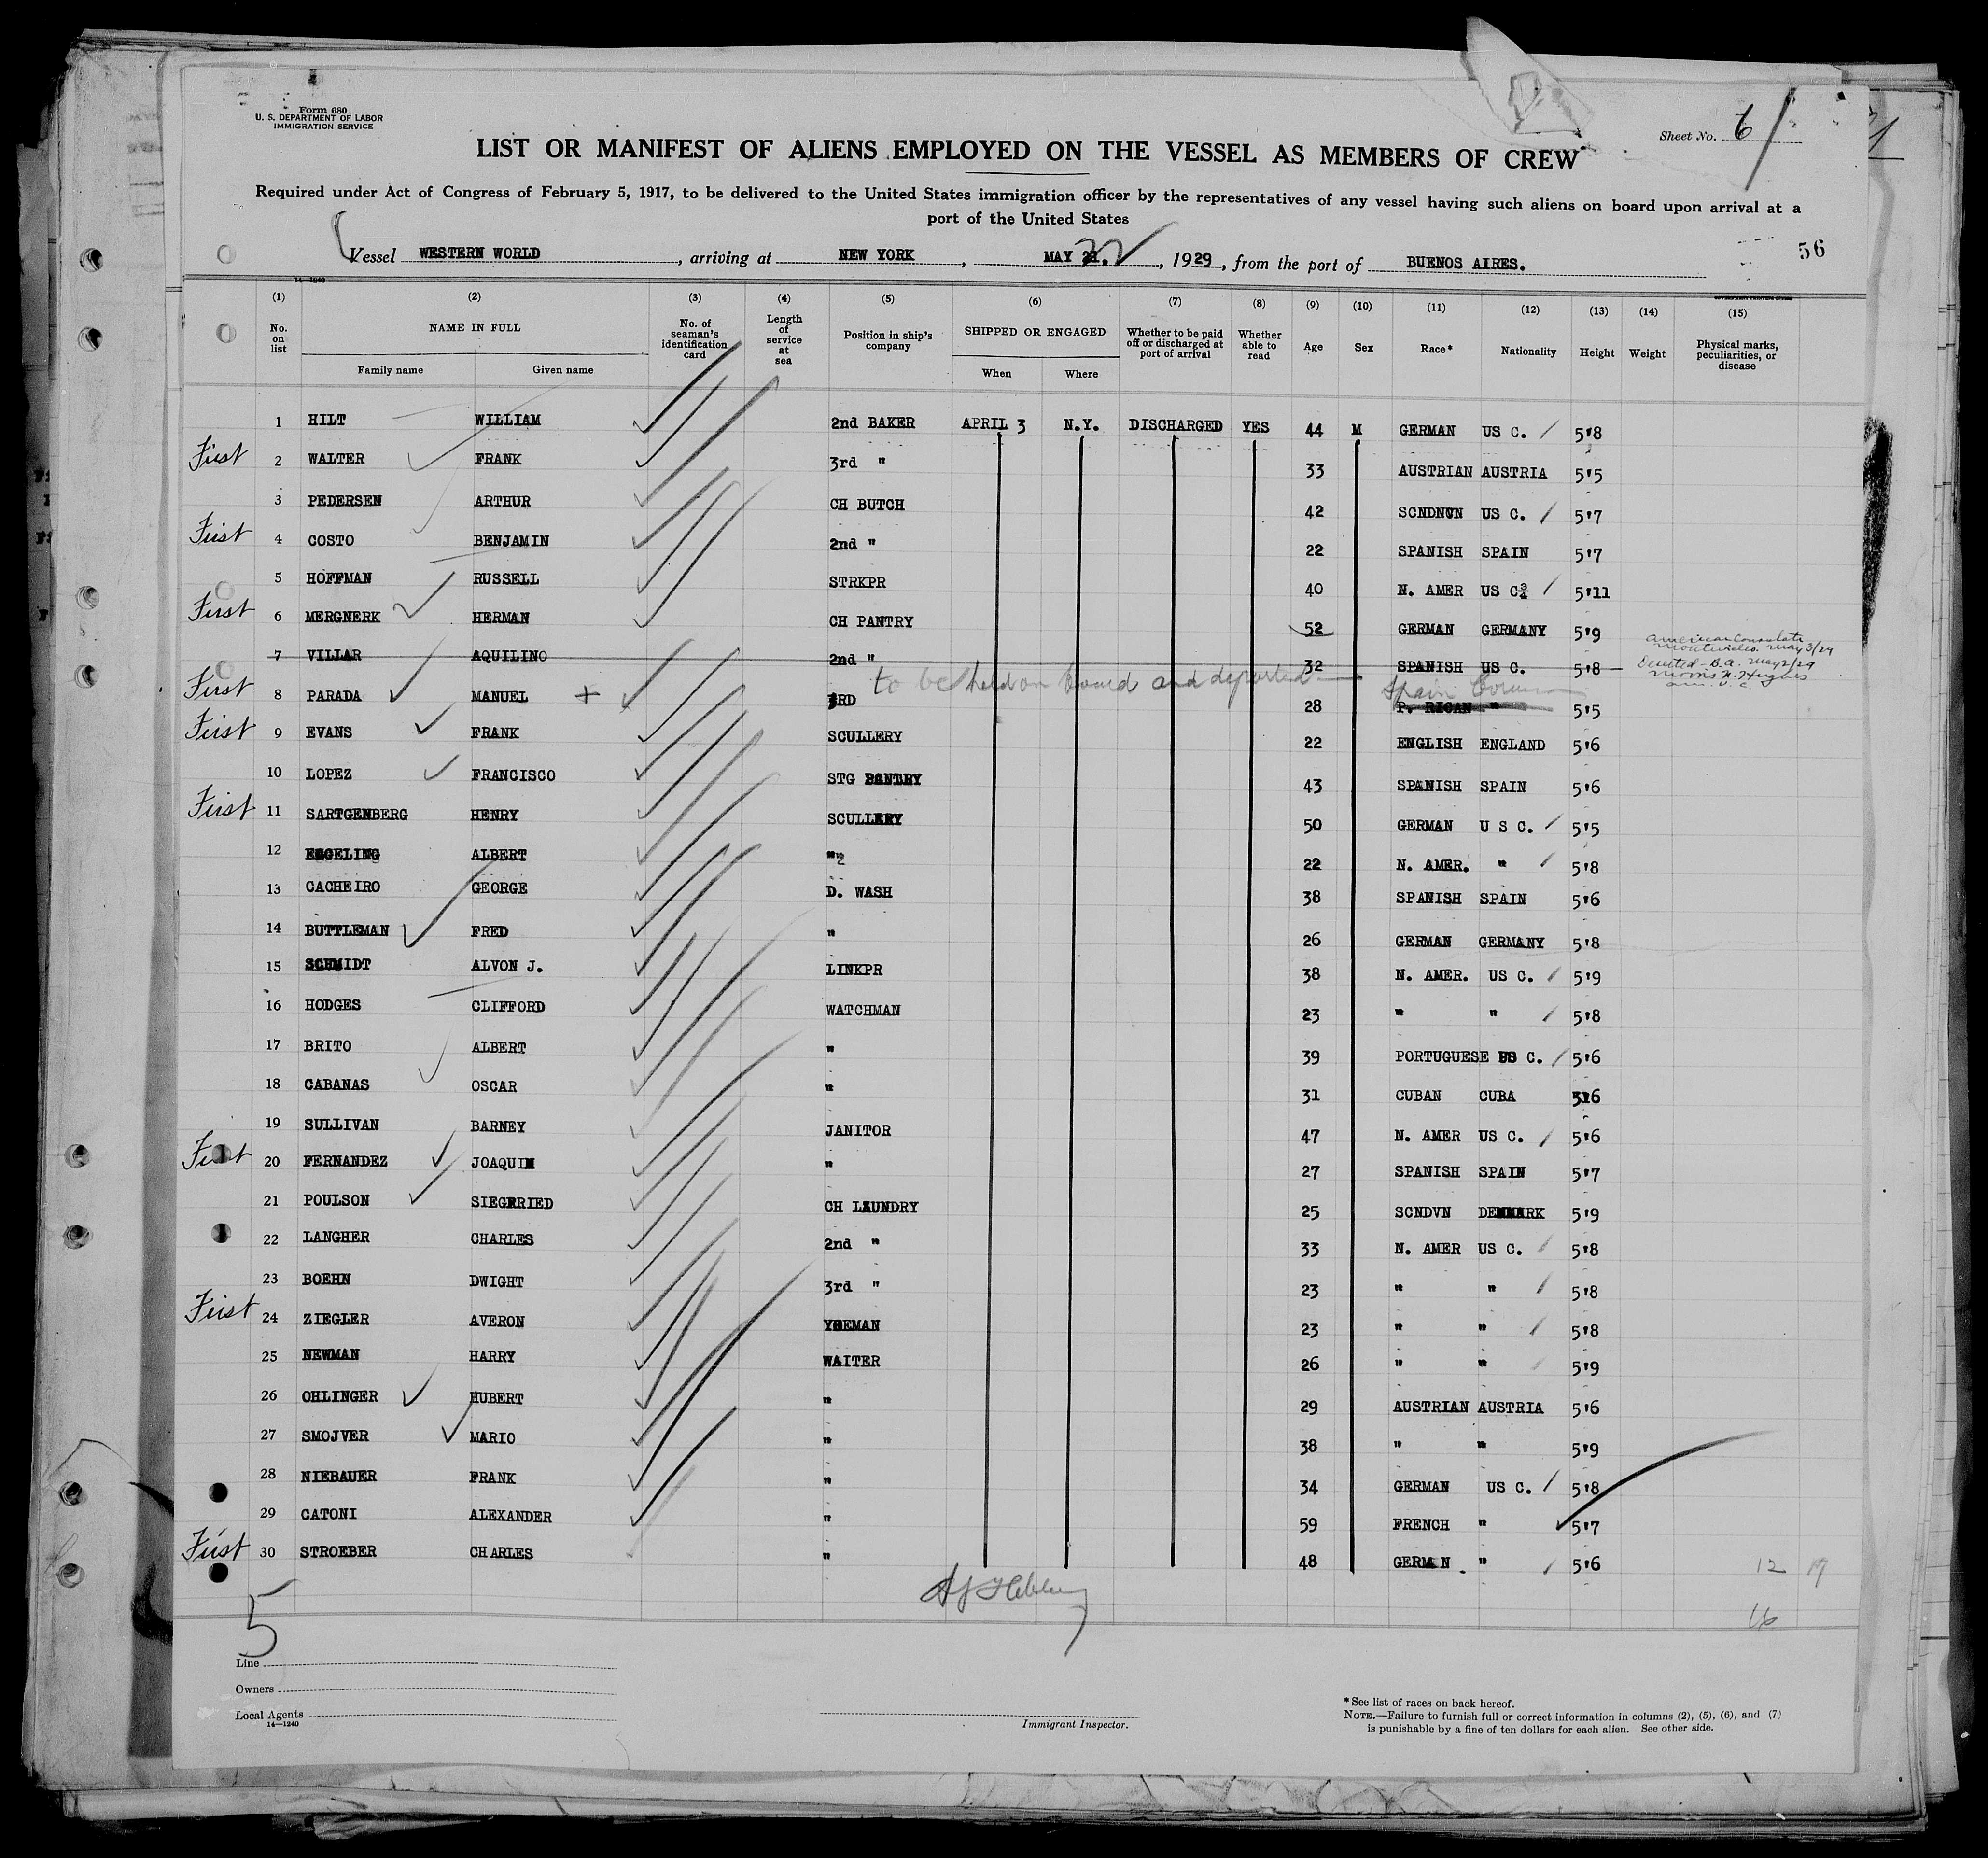 Form 680
U. S. DEPARTMENT OF LABOR
IMMIGRATION SERVICE
Sheet No. 6
LIST OR MANIFEST OF ALIENS EMPLOYED ON THE VESSEL AS MEMBERS OF CREW
Required under Act of Congress of February 5, 1917, to be delivered to the United States immigration officer by the representatives of any vessel having such aliens on board upon arrival at a
port of the United States
Vessel WESTERN WORLD, arriving at NEW YORK, MAY 22, 1929, from the port of BUENOS AIRES.
56
14-1240
(1) (2) (3) (4) (5) (6) (7) (8) (9) (10) (11) (12) (13) (14) (15)
No. on list NAME IN FULL Family name Given name No. of seaman's identification card Length of service at sea Position in ship's company SHIPPED OR ENGAGED When Where Whether to be paid off or discharged at port of arrival Whether able to read Age Sex Race* Nationality Height Weight Physical marks, peculiarities, or disease
1 HILT WILLIAM 2nd BAKER APRIL 3 N.Y. DISCHARGED YES 44 M GERMAN US C. 5'8
First 2 WALTER FRANK 3rd " 33 AUSTRIAN AUSTRIA 5'5
3 PEDERSEN ARTHUR CH BUTCH 42 SCNDNVN US C. 5'7
First 4 COSTO BENJAMIN 2nd " 22 SPANISH SPAIN 5'7
5 HOFFMAN RUSSELL STRKPR 40 N. AMER US C 5'11
First 6 MERGNERK HERMAN CH PANTRY 52 GERMAN GERMANY 5'9
7 VILLAR AQUILINO 2nd " 32 SPANISH US C. 5'8
American Consulate
Montevideo. May 3/29
Deserted - B.A. May 2/29
to be held on board and deported
Spain
First 8 PARADA MANUEL + 3RD 28 P. RICAN " 5'5
First 9 EVANS FRANK SCULLERY 22 ENGLISH ENGLAND 5'6
10 LOPEZ FRANCISCO STG PANTRY 43 SPANISH SPAIN 5'6
First 11 SARTGENBERG HENRY SCULLERY 50 GERMAN U S C. 5'5
12 ENGELING ALBERT " 22 N. AMER. " 5'8
13 CACHEIRO GEORGE D. WASH 38 SPANISH SPAIN 5'6
14 BUTTLEMAN FRED " 26 GERMAN GERMANY 5'8
15 SCHMIDT ALVON J. LINKPR 38 N. AMER. US C. 5'9
16 HODGES CLIFFORD WATCHMAN 23 " " 5'8
17 BRITO ALBERT " 39 PORTUGUESE US C. 5'6
18 CABANAS OSCAR " 31 CUBAN CUBA 5'6
19 SULLIVAN BARNEY JANITOR 47 N. AMER US C. 5'6
First 20 FERNANDEZ JOAQUIM " 27 SPANISH SPAIN 5'7
21 POULSON SIEGFRIED CH LAUNDRY 25 SCNDVN DENMARK 5'9
22 LANGHER CHARLES 2nd " 33 N. AMER US C. 5'8
23 BOEHN DWIGHT 3rd " 23 " " 5'8
First 24 ZIEGLER AVERON YOEMAN 23 " " 5'8
25 NEWMAN HARRY WAITER 26 " " 5'9
26 OHLINGER HUBERT " 29 AUSTRIAN AUSTRIA 5'6
27 SMOJVER MARIO " 38 " " 5'9
28 NIEBAUER FRANK " 34 GERMAN US C. 5'8
29 CATONI ALEXANDER " 59 FRENCH " 5'7
First 30 STROEBER CHARLES " 48 GERMAN " 5'6
12 17
16
5
Line
Owners
Local Agents
14—1240
Immigrant Inspector.
* See list of races on back hereof.
NOTE.—Failure to furnish full or correct information in columns (2), (5), (6), and (7)
is punishable by a fine of ten dollars for each alien. See other side.